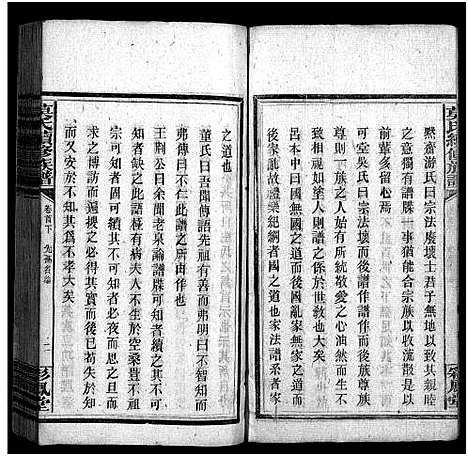 莫氏續修族譜
彩鳳堂
默齋游氏曰宗法廢壞士君子無地以致其親睦
之意獨有譜牒一事猶能合宗族以收流散是以
前輩多留心焉
可堂吳氏曰宗法壞而後譜作譜作而後尊族
尊則一族之人始有所統敬愛之心油然而生不
至相視如塗人則譜之係於世教也大矣
呂本中曰國無國之道而後國亂家無家之道而
後家亂故禮樂紀綱者國之道也家法譜系者家
之道也
董氏曰吾聞傳語先祖有善而弗明曰不智知而
弗傳曰不仁此譜之所由作也
王荆公曰余聞老泉論譜牒可知者續之其不可
知者缺之此譜極有病夫人不生於空桑豈不有
宗可知者固可續其不可知者必夜而思之旦而
求之博訪而遍摸之必得其實而後已苟失於知
而又安於不知其為不孝大矣
莫氏續修族譜
卷首下
二
彩鳳堂